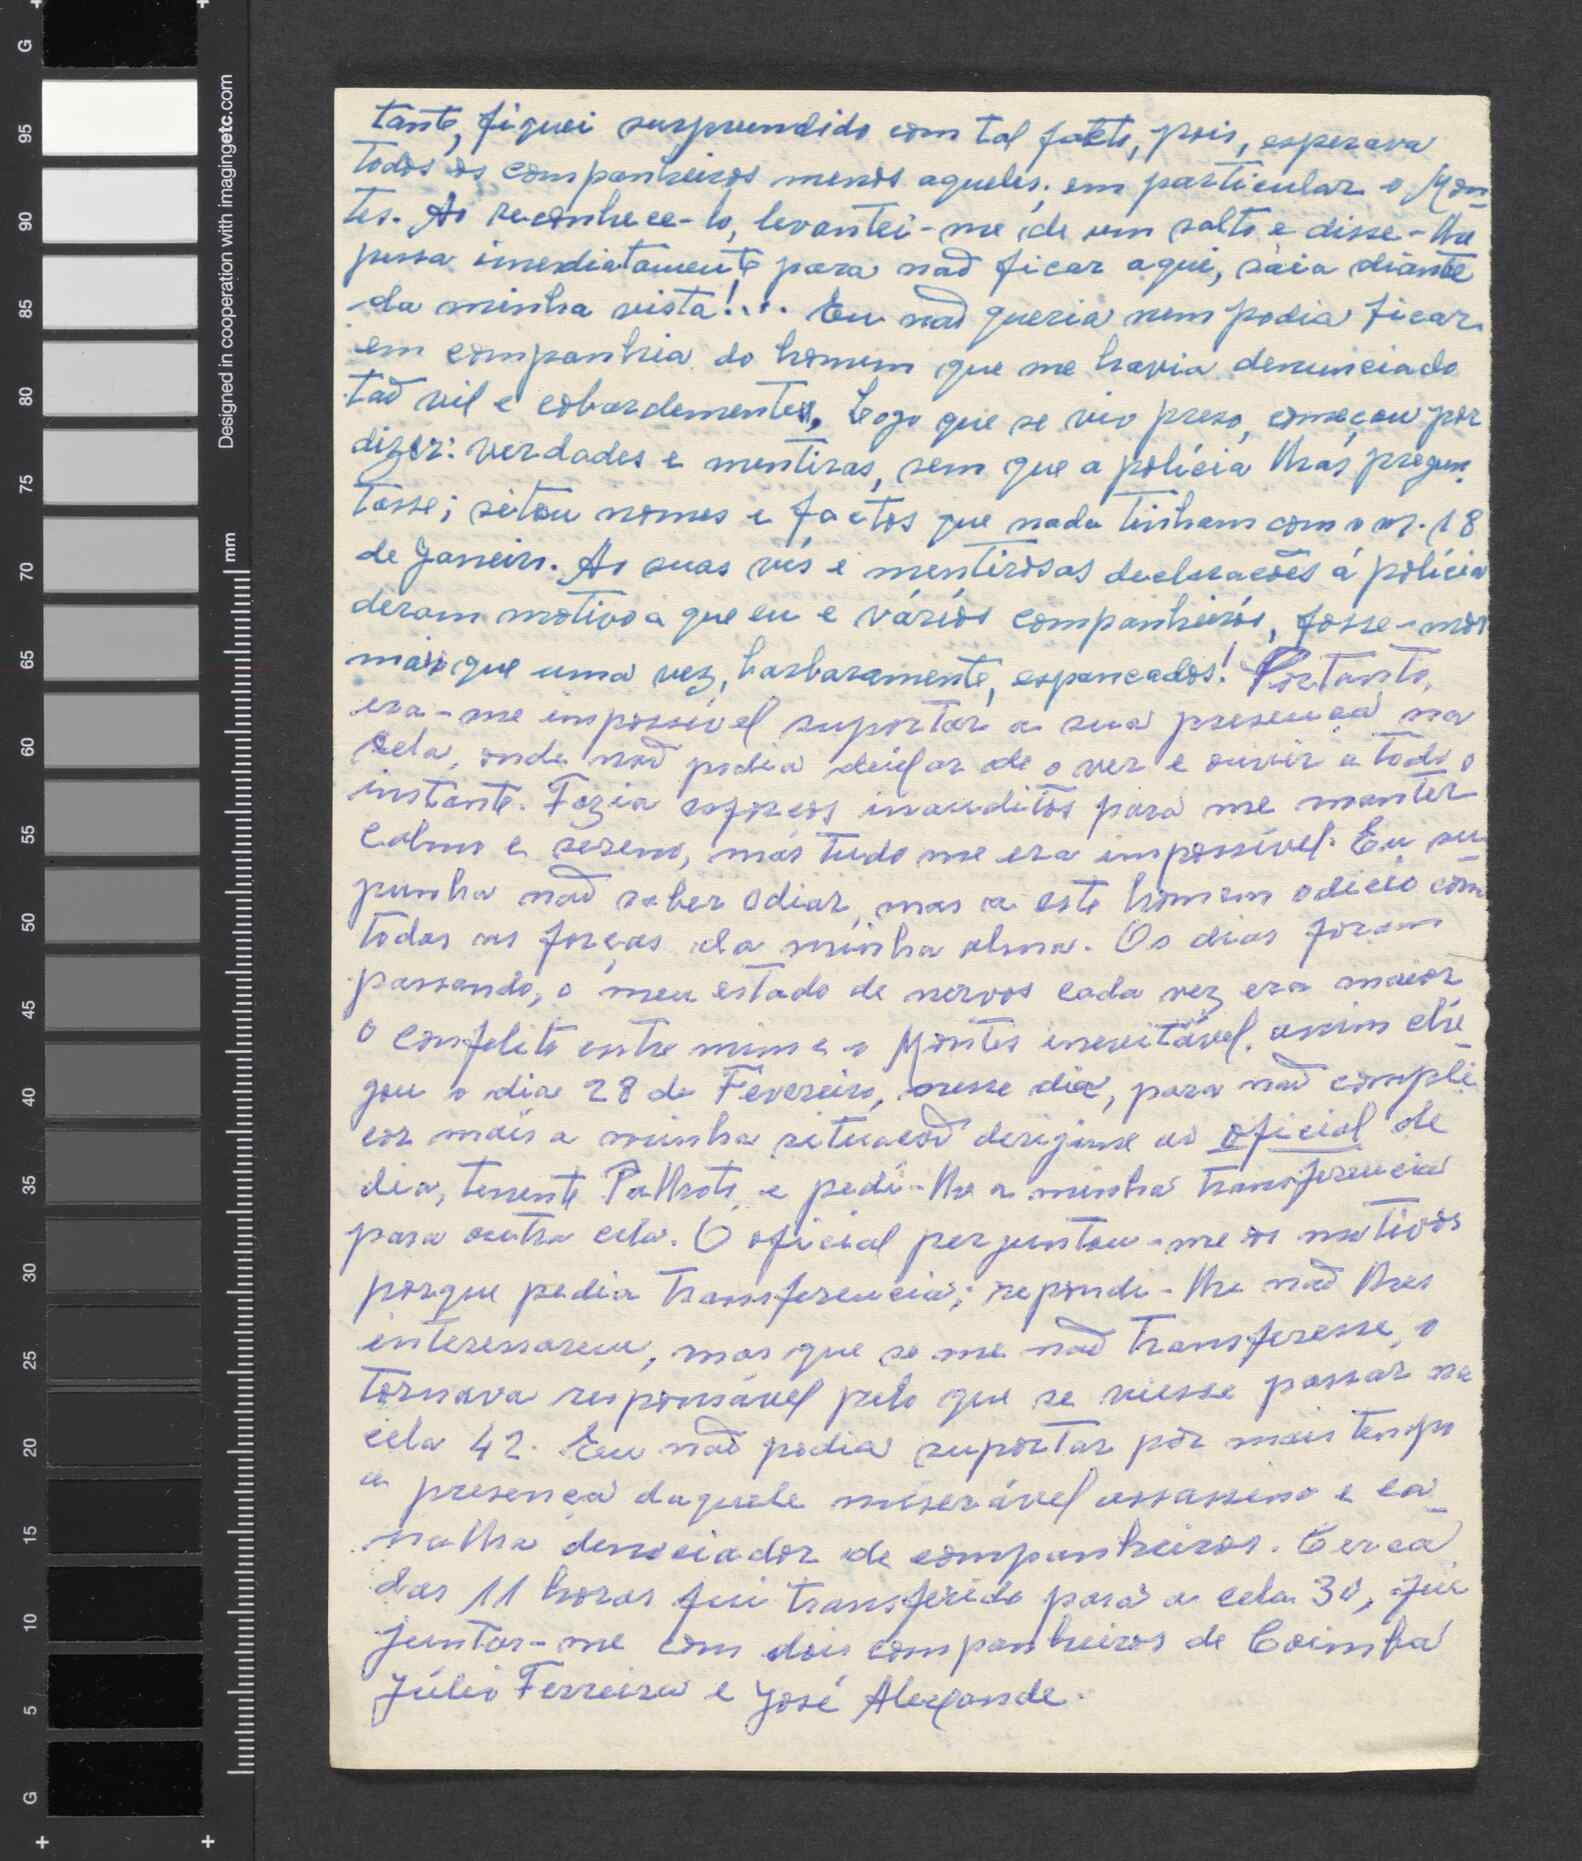 tante, fiquei surprendido com tal facto, pois, esperava
todos os companheiros menos aqueles, em particular o Mon-
tes. Ao reconhece-lo, levantei-me de um salto e disse-lhe
pussa imediatamente para nao ficar aqui, sáia diante
da minha vista!... Eu nao queria nem podia ficar
em companhia do homem que me havia denunciado
tao vil e cobardemente, logo que se viu preso, começou por
dizer: verdades e mentiras, sem que a polícia lhas pregun-
tasse; sitou nomes e factos que nada tinham com o m. 18
de Janeiro. As suas vis e mentirosas declarações á polícia
deram motivo a que eu e vários companheiros, fosse-mos
mais que uma vez, barbaramente, espancados! Portanto,
era-me impossível suportar a sua presença na
cela, onde nao podia deixar de o ver e ouvir a todo o
instante. Fazia esforços inauditos para me manter
calmo e sereno, mas tudo me era impossível. Eu su-
punha nao saber odiar, mas a este homem odieio com
todas as forças da minha alma. Os dias foram
passando, o meu estado de nervos cada vez era maior
o conflito entre mim e o Montes inevitável. assim che-
gou o dia 28 de Fevereiro, nesse dia, para nao compli
car mais a minha situação derigime ao oficial de
dia, tenente Palhoto, e pedi-lhe a minha transferencia
para outra cela. O oficial perguntou-me os motivos
porque pedia transferencia; repondi-lhe nao lhes
interessarem, mas que se me nao transferesse, o
tornava responsável pelo que se viesse passar na
cela 42. Eu nao podia suportar por mais tempo
a presença daquele miserável assassino e ca-
nalha denociador de companheiros. Cerca
das 11 horas fui transferido para a cela 30, fui
juntar-me com dois companheiros de Coimba
Júlio Ferreira e José Alexande.
95
90
85
80
75
70
65
60
55
50
45
40
35
30
25
20
15
10
5
G
G
mm
Designed in cooperation with imagingetc.com